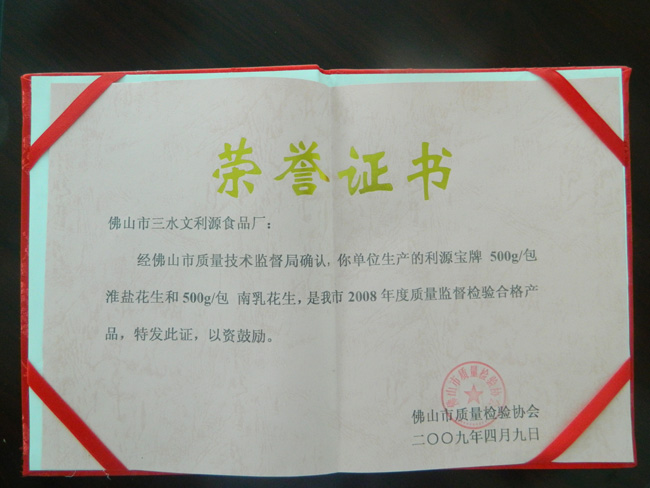 荣誉证书
佛山市三水文利源食品厂：
经佛山市质量技术监督局确认，你单位生产的利源宝牌 500g/包
淮盐花生和500g/包 南乳花生，是我市2008年度质量监督检验合格产
品，特发此证，以资鼓励。
佛山市质量检验协会
佛山市质量检验协会
二〇〇九年四月九日